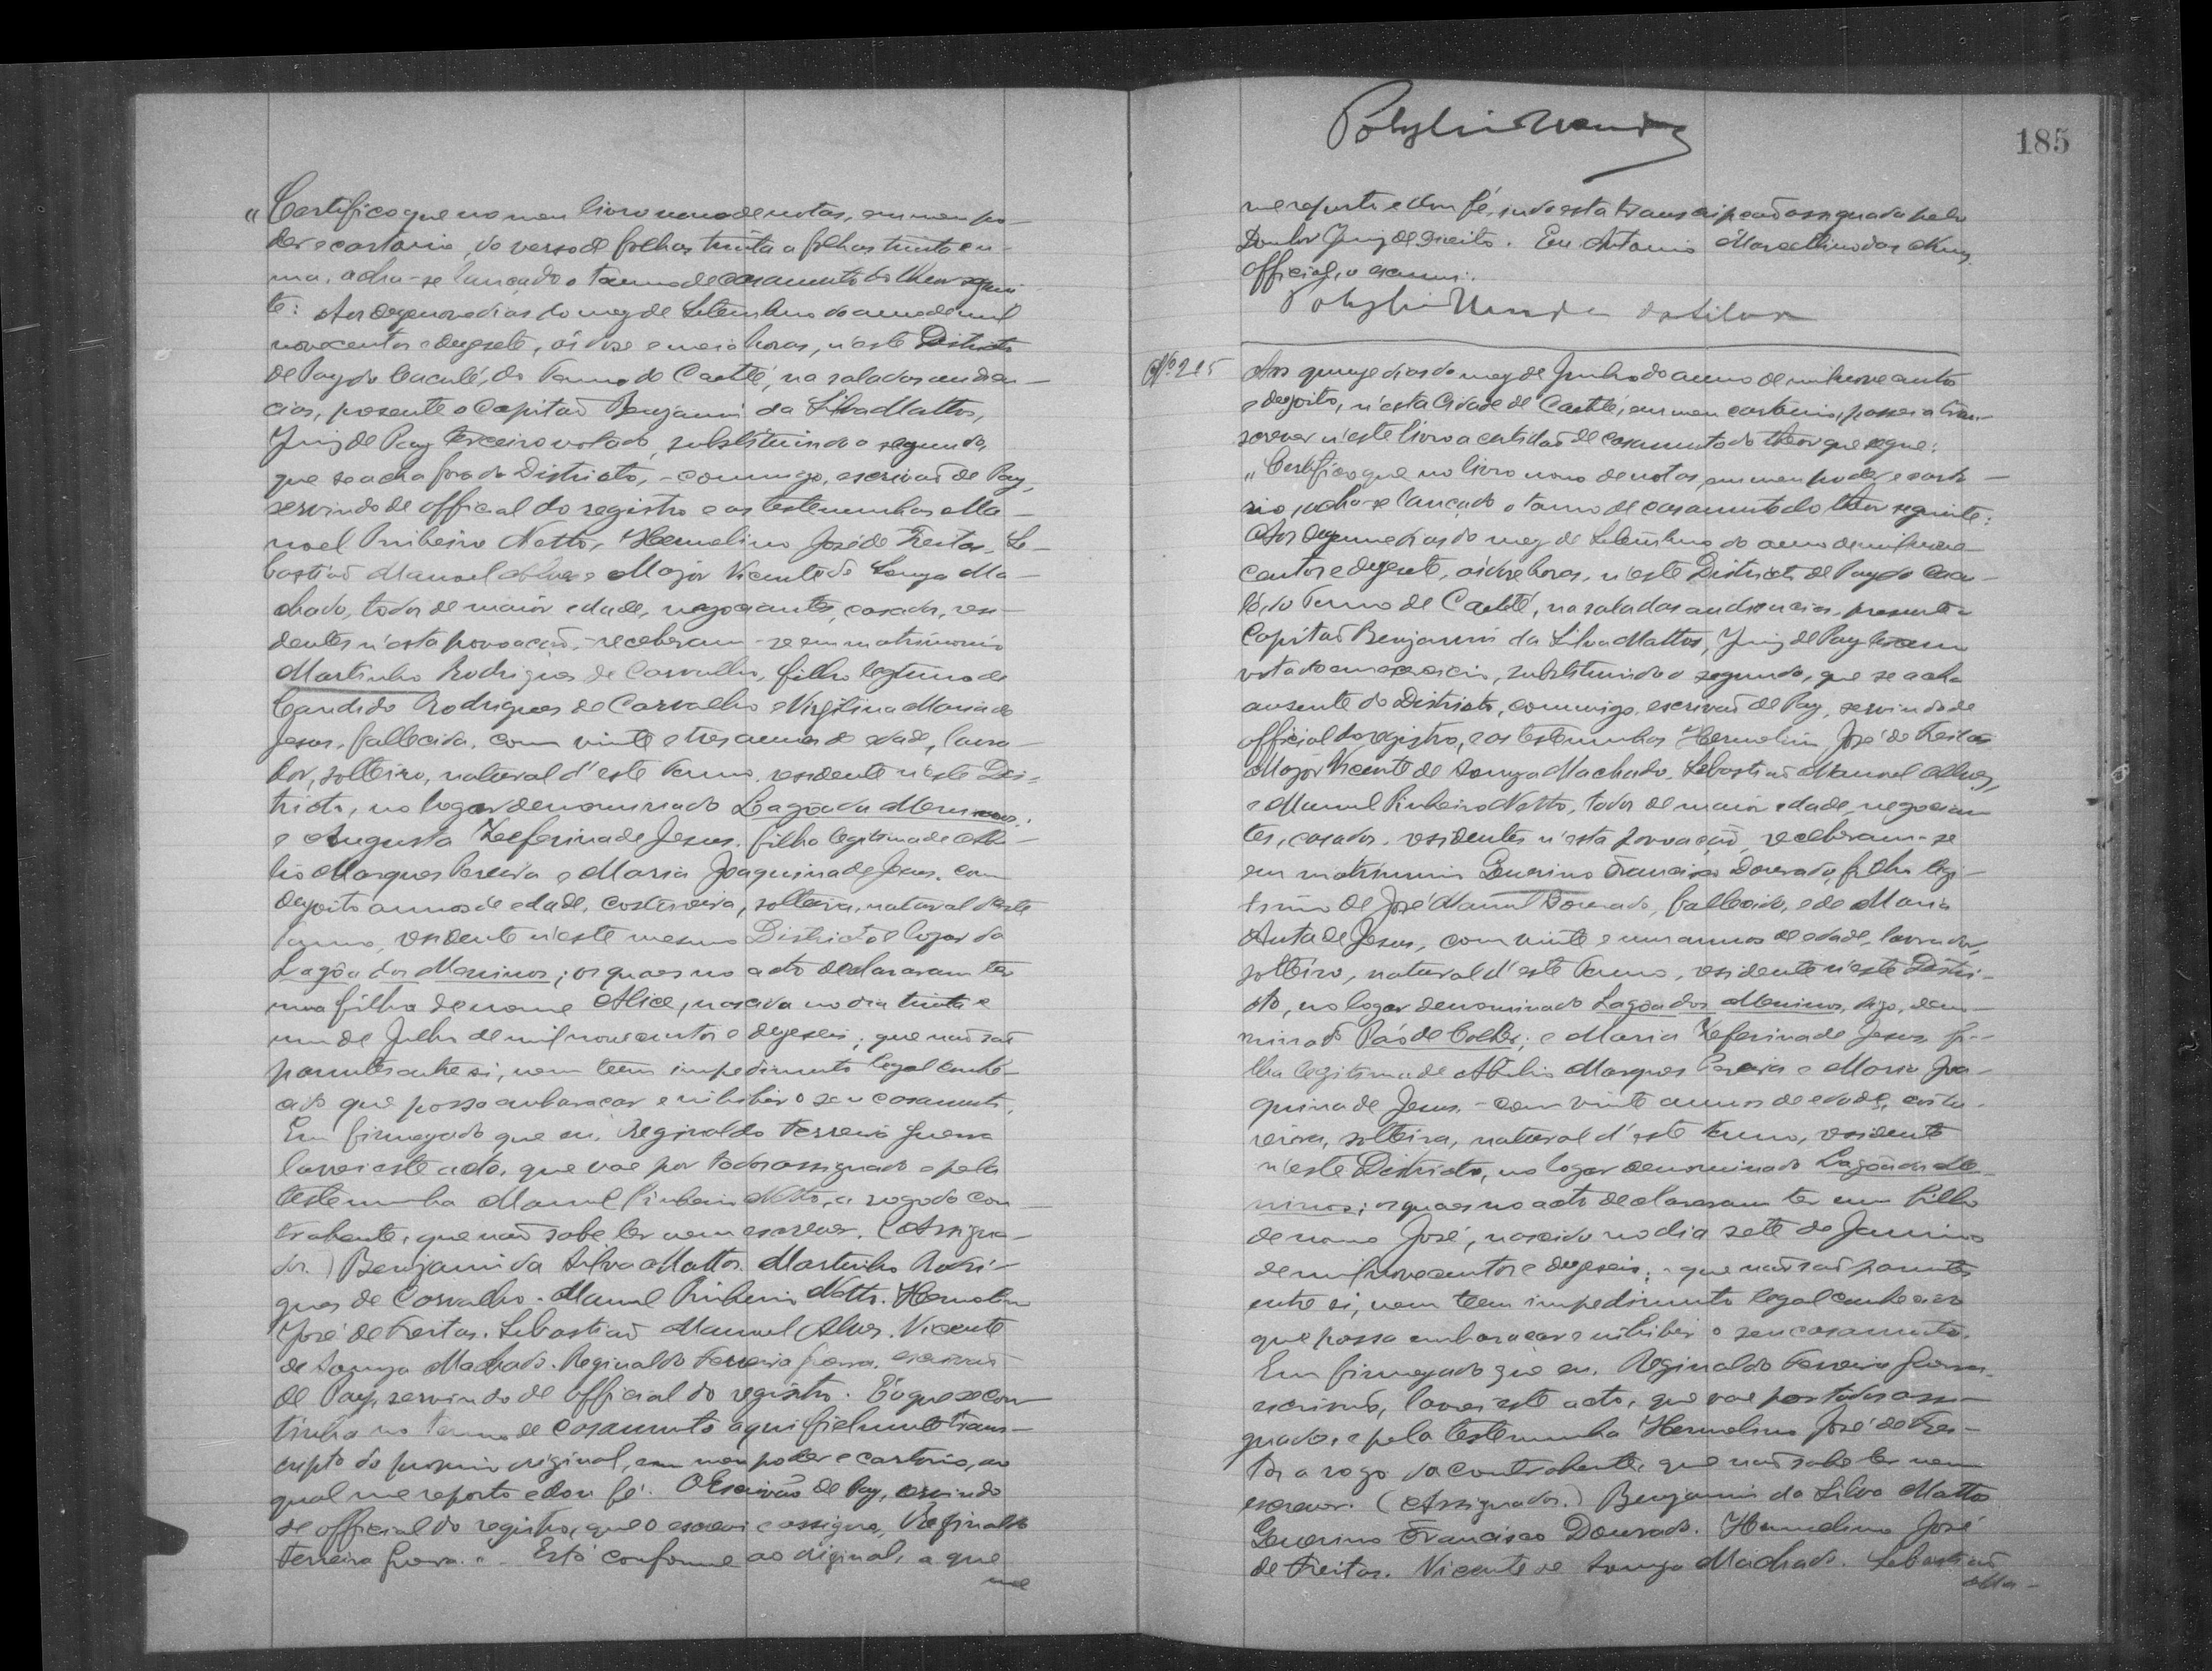 "Certifico que no meu livro novo de notas, em meu po-
der e cartorio, do verso de folhas trinta a folhas trinta e u-
ma, acha-se lançado o termo de casamento do theor seguin-
te: Aos dezenove dias do mez de Setembro do anno de mil
novecentos e dezesete, ás doze e meia horas, n'este Districto
de Paz do Caculé, do Termo de Caetité, na sala das audien-
cias, presente o Capitaõ Benjamin da Silva Mattos,
Juiz de Paz terceiro votado, substituindo o segundo,
que se acha fora do Districto, - commigo, escrivaõ de Paz,
servindo de official do registro e as testemunhas Ma-
noel Pinheiro Netto, Hermelino José de Freitas, Se-
bastiaõ Manoel Alves e Major Vicente de Souza Ma-
chado, todos de maior edade, negociantes, casados, resi-
dentes n'esta povoaçaõ, - receberam-se em matrimonio
Martinho Rodrigues de Carvalho, filho legitimo de
Candido Rodrigues de Carvalho e Virgilina Maria de
Jesus, fallecida, com vinte e tres annos de edade, lavra-
dor, solteiro, natural d'este Termo, residente n'este Dis-
tricto, no logar denominado Lagôa dos Meninos;
e Augusta Zeferina de Jesus, filha legitima de Abi-
lio Marques Pereira e Maria Joaquina de Jesus, com
dezoito annos de edade, costureira, solteira, natural d'este
Termo, residente n'este mesmo Districto e logar da
Lagôa dos Meninos; os quaes no acto declararam ter
uma filha de nome Alice, nascida no dia trinta e
um de Julho de mil novecentos e dezeseis; que naõ saõ
parentes entre si, nem teem impedimento legal conhe-
cido que possa embaraçar e inhibir o seu casamento.
Em firmeza do que eu, Reginaldo Ferreira Guerra
lavrei este acto, que vae por todos assignado e pela
testemunha Manoel Pinheiro Netto, a rogo da con-
trahente, que naõ sabe ler nem escrever. (Assigna-
dos.) Benjamin da Silva Mattos. Martinho Rodri-
gues de Carvalho. Manoel Pinheiro Netto. Hermelino
José de Freitas. Sebastiaõ Manoel Alves. Vicente
de Souza Machado. Reginaldo Ferreira Guerra, escrivaõ
de Paz, servindo de official do registro. É o que se con-
tinha no termo de casamento aqui fielmente trans-
cripto do proprio original, em meu poder e cartorio, ao
qual me reporto e dou fé. O Escrivaõ de Paz, servindo
de official do registro, que o escrevi e assigno, Reginaldo
Ferreira Guerra." - Está conforme ao original, a que
me
185
me reporto e dou fé, sendo esta transcripçaõ assignada pelo
Doutor Juiz de Direito. Eu Antonio Marcellino das Neves
official, o escrevi.
da Silva
Nº 215
Aos quinze dias do mez de Junho do anno de mil novecentos
e dezoito, n'esta Cidade de Caetité, em meu cartorio, passei a trans-
crever n'este livro a certidaõ de casamento do theor que segue:
"Certifico que no livro novo de notas, em meu poder e carto-
rio, acha-se lançado o termo de casamento do theor seguinte:
Aos dezenove dias do mez de Setembro do anno de mil nove-
centos e dezesete, ás doze horas, n'este Districto de Paz do Cacu-
lé, do Termo de Caetité, na sala das audiencias, presente o
Capitaõ Benjamin da Silva Mattos, Juiz de Paz terceiro
votado em exercicio, substituindo o segundo, que se acha
ausente do Districto, commigo, escrivaõ de Paz, servindo de
official do registro, e as testemunhas Hermelino José de Freitas
Major Vicente de Souza Machado, Sebastiaõ Manoel Alves,
e Manoel Pinheiro Netto, todos de maior edade, negocian-
tes, casados, residentes n'esta povoaçaõ, receberam-se
em matrimonio Guerino Francisco Dourado, filho legi-
timo de José Manoel Dourado, fallecido, e de Maria
Anta de Jesus, com vinte e um annos de edade, lavrador,
solteiro, natural d'este Termo, residente n'este Distri-
cto, no logar denominado Lagôa dos Meninos, digo, deno-
minado Páo de Colher; e Maria Zeferina de Jesus, fi-
lha legitima de Abilio Marques Pereira e Maria Joa-
quina de Jesus, - com vinte annos de edade, costu-
reira, solteira, natural d'este Termo, residente
n'este Districto, no logar denominado Lagôa dos Me-
ninos; os quaes no acto declararam ter um filho
de nome José, nascido no dia sete de Janeiro
de mil novecentos e dezeseis; - que naõ saõ parentes
entre si, nem teem impedimento legal conhecido
que possa embaraçar e inhibir o seu casamento.
Em firmeza do que eu, Reginaldo Ferreira Guerra,
escrivaõ, lavrei este acto, que vae por todos assi-
gnado, e pela testemunha Hermelino José de Frei-
tas a rogo da contrahente, que naõ sabe ler nem
escrever. (Assignados.) Benjamin da Silva Mattos
Guerino Francisco Dourado. Hermelino José
de Freitas. Vicente de Souza Machado. Sebastiaõ
Ma-